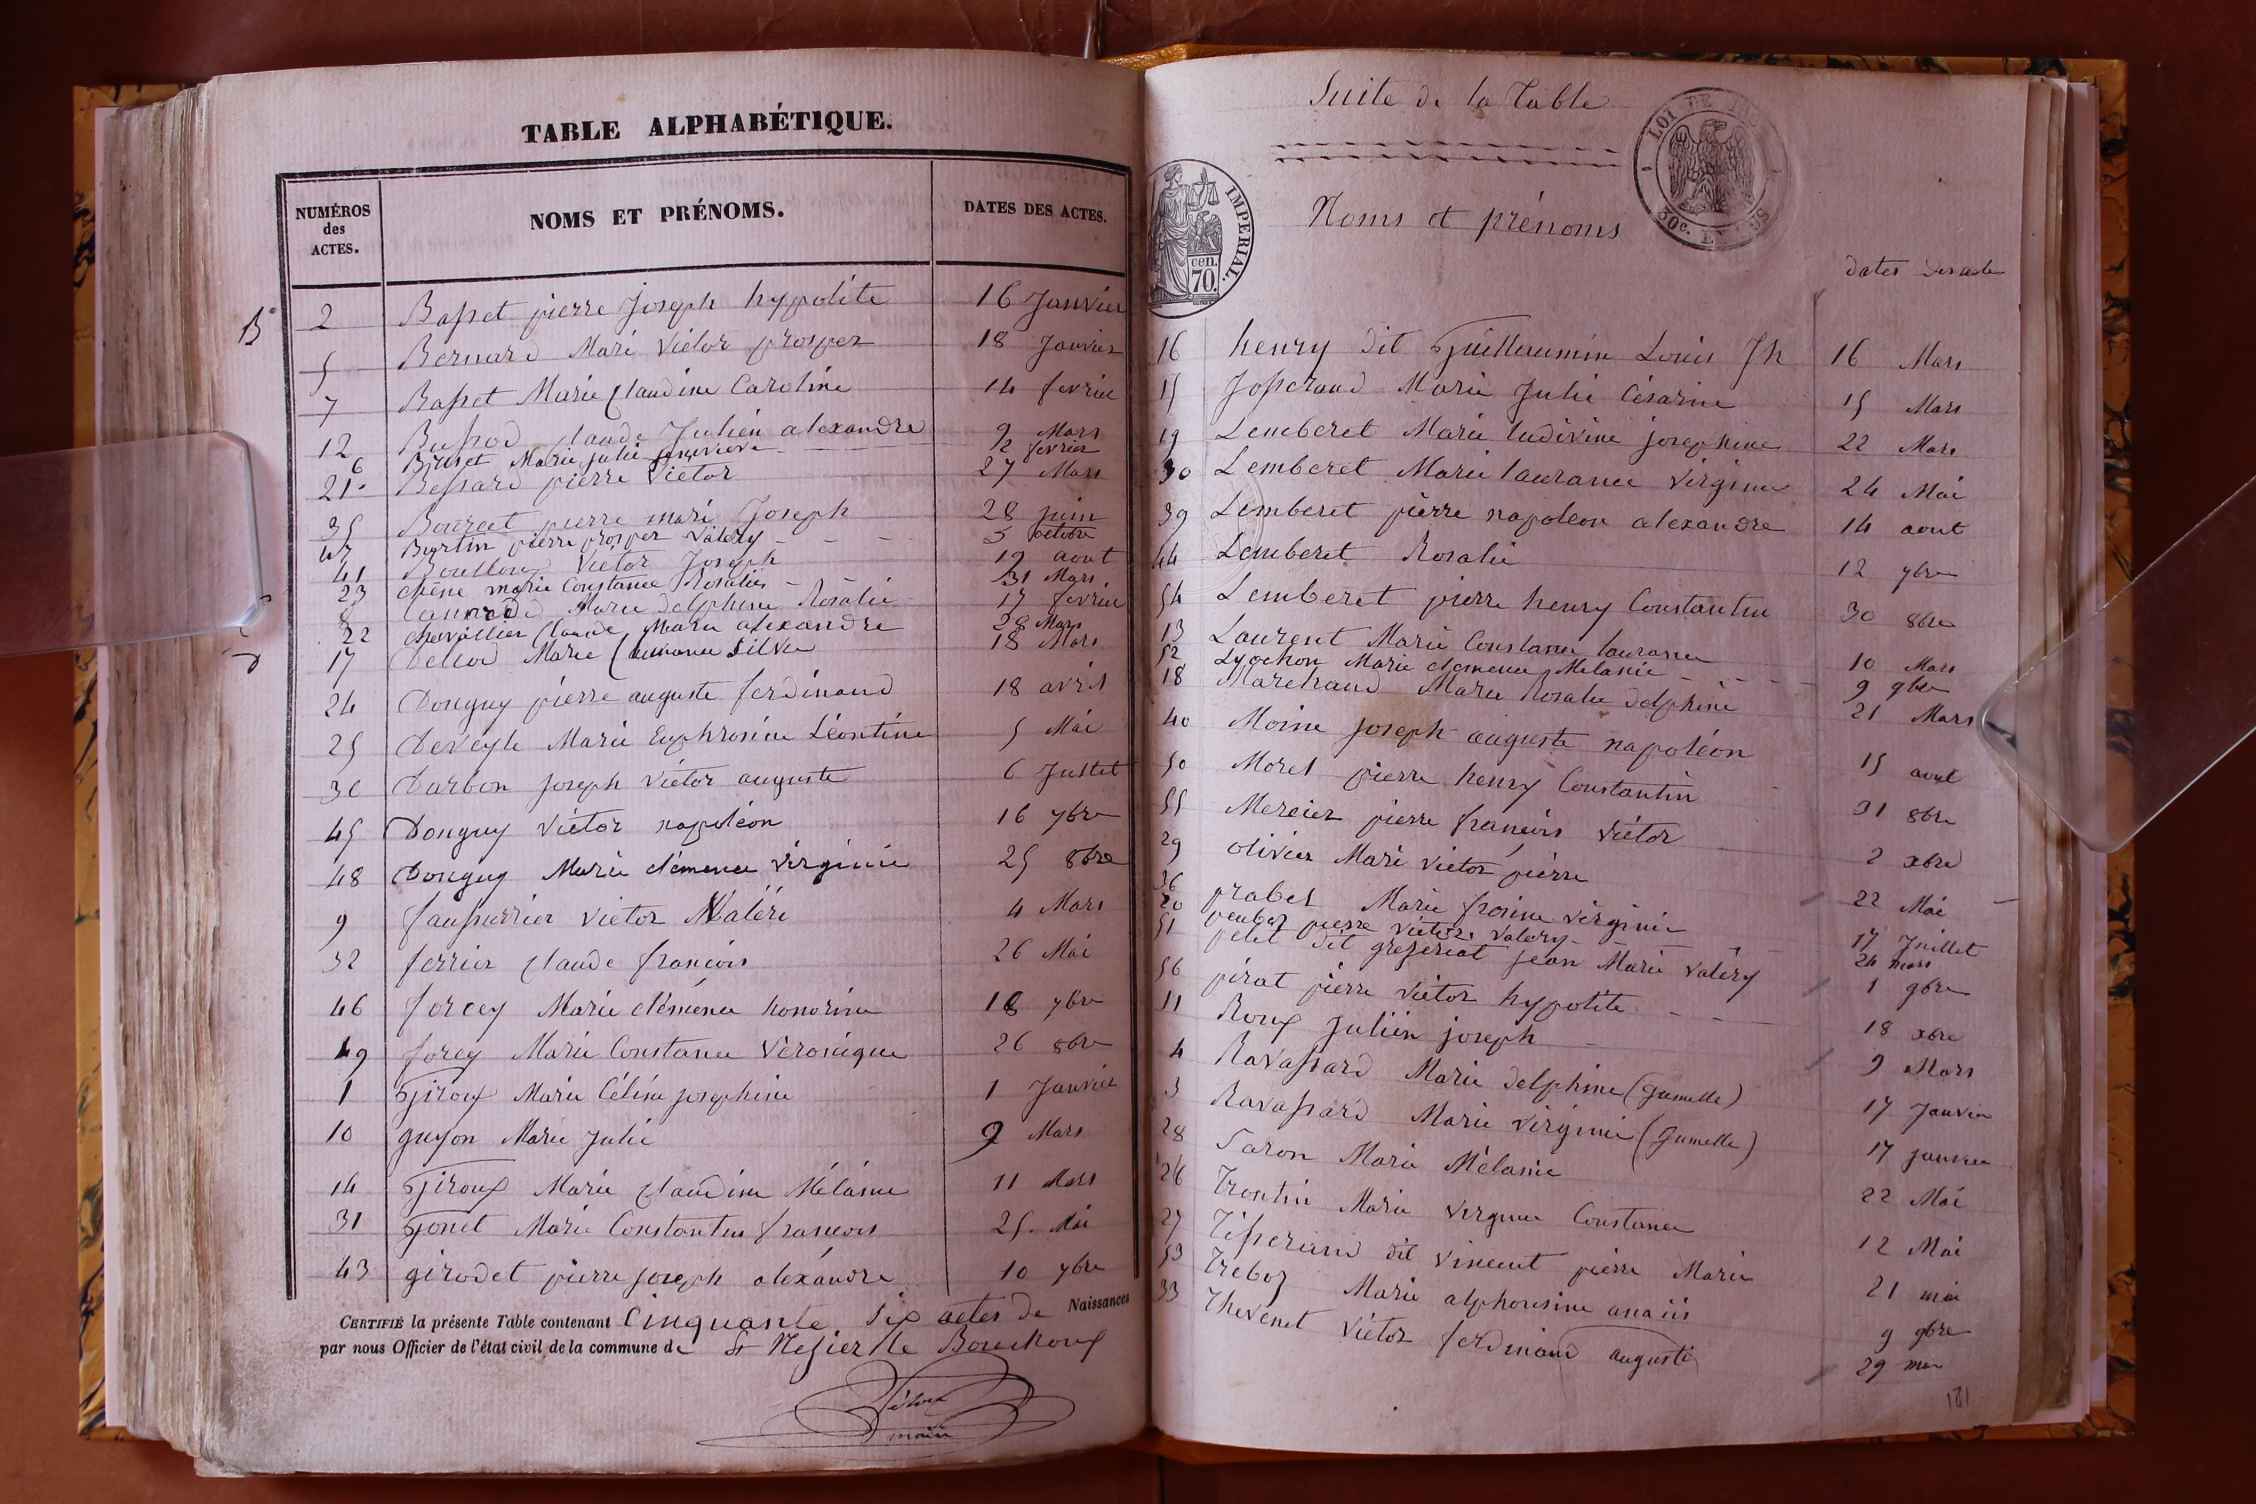 TABLE ALPHABÉTIQUE.
NUMÉROS des ACTES. NOMS ET PRÉNOMS. DATES DES ACTES.
B
2 Basset pierre Joseph hyppolite 16 Janvier
5 Bernard Mari Victor prosper 18 Janvier
7 Basset Marie Claudine Caroline 14 fevrier
12 Claude Julien alexandre 9 Mars
6 Marie julie 2 fevrier
21 Bessard pierre Victor 27 Mars
35 pierre mari Joseph 28 juin
47 Burtin pierre prosper Valery 5 octobre
41 Bouilloux Victor Joseph 19 aout
23 chêne marie Constance Rosalie 31 Mars
8 Marie delphine Rosalie 17 fevrier
22 chevallier Claude Marie alexandre 28 Mars
17 Marie 18 Mars
24 Donguy pierre auguste ferdinand 18 avril
25 Deveyle Marie Euphrosine Léontine 5 Mai
36 Darbon Joseph Victor auguste 6 Juillet
45 Donguy Victor napoléon 16 7bre
48 Donguy Marie clémence virginie 25 8bre
9 faussurrier Victor Valéri 4 Mars
32 ferrier Claude francois 26 Mai
46 forcey Marie clémence honorine 18 7bre
49 forcy Marie Constance Veronique 26 8bre
1 Giroux Marie Céline josephine 1 Janvier
10 guyon Marie Julie 9 Mars
14 Giroux Marie Claudine Mélanie 11 Mars
31 Gonet Marie Constantin francois 25 Mai
43 girodet pierre joseph alexandre 10 7bre
CERTIFIÉ la présente Table contenant Cinquante six actes de Naissances
par nous Officier de l'état civil de la commune de St Nizier le Bouchoux
maire
Suite de la Table
LOI DE
30c. EN SUS
IMPERIAL.
cen. 70.
Noms et prénoms
dates des actes
16 henry dit Guillaumin Louis Jh 16 Mars
15 Josserand Marie Julie Césarine 15 Mars
19 Lemberet Marie ludivine josephine 22 Mars
30 Lemberet Marie laurance Virginie 24 Mai
39 Lemberet pierre napoleon alexandre 14 aout
44 Lemberet Rosalie 12 7bre
54 Lemberet pierre henry Constantin 30 8bre
13 Laurent Marie Constance laurance 10 Mars
52 Lyochon Marie clemence Melanie 9 9bre
18 Marchand Marie Rosalie delphine 21 Mars
40 Moine Joseph auguste napoléon 15 aout
50 Morel pierre henry Constantin 31 8bre
55 Mercier pierre francois Victor 2 xbre
29 olivier Mari victor pierre 22 Mai
36 prabel Marie frosine virginie 17 Juillet
20 pierre Victor Valery 24 mars
51 petit dit grezeriat Jean Marie Valéry 1 9bre
56 pirat pierre Victor hyppolite 18 xbre
11 Roux Julien joseph 9 Mars
4 Ravassard Marie delphine (Jumelle) 17 Janvier
3 Ravassard Marie virginie (Jumelle) 17 janvier
28 Saron Marie Mélanie 22 Mai
26 Trontin Marie Virginie Constance 12 Mai
27 Tisserand dit Vincent pierre Marie 21 mai
53 Treboz Marie alphonsine anaïs 9 9bre
33 Thevenet Victor ferdinand auguste 29 mai
181